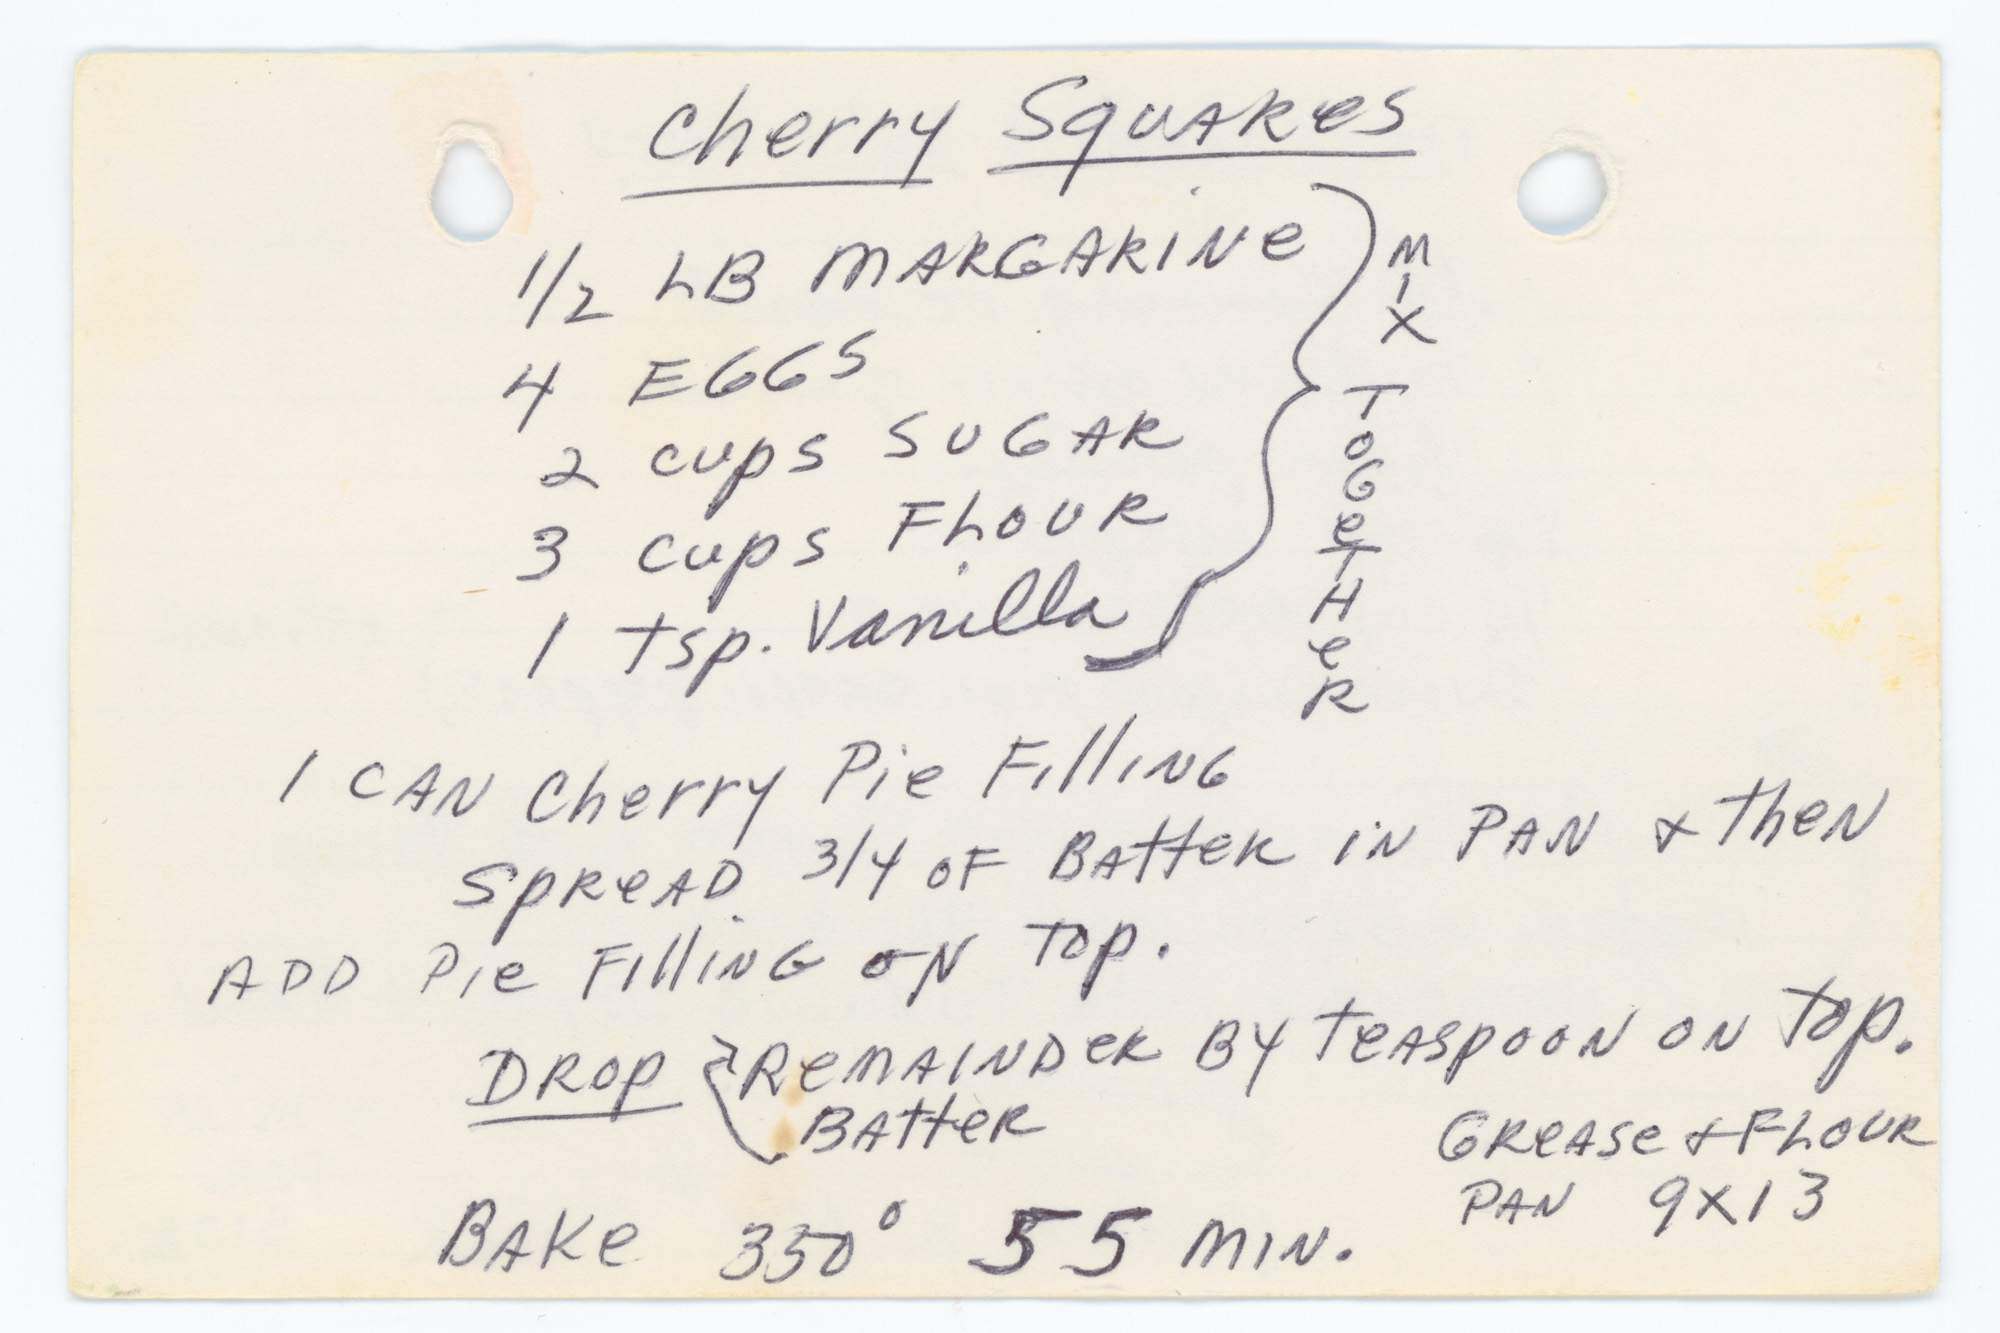 Cherry Squares
1/2 LB MARGARINE
4 EGGS
2 cups SUGAR
3 cups FLOUR
1 tsp. Vanilla
MIX TOGETHER
1 CAN Cherry Pie Filling
SPREAD 3/4 OF BATTER IN PAN & then
ADD Pie Filling ON Top.
DROP { REMAINDER BY TEASPOON ON Top.
BATTER
GREASE & FLOUR
PAN 9X13
BAKE 350° 55 MIN.